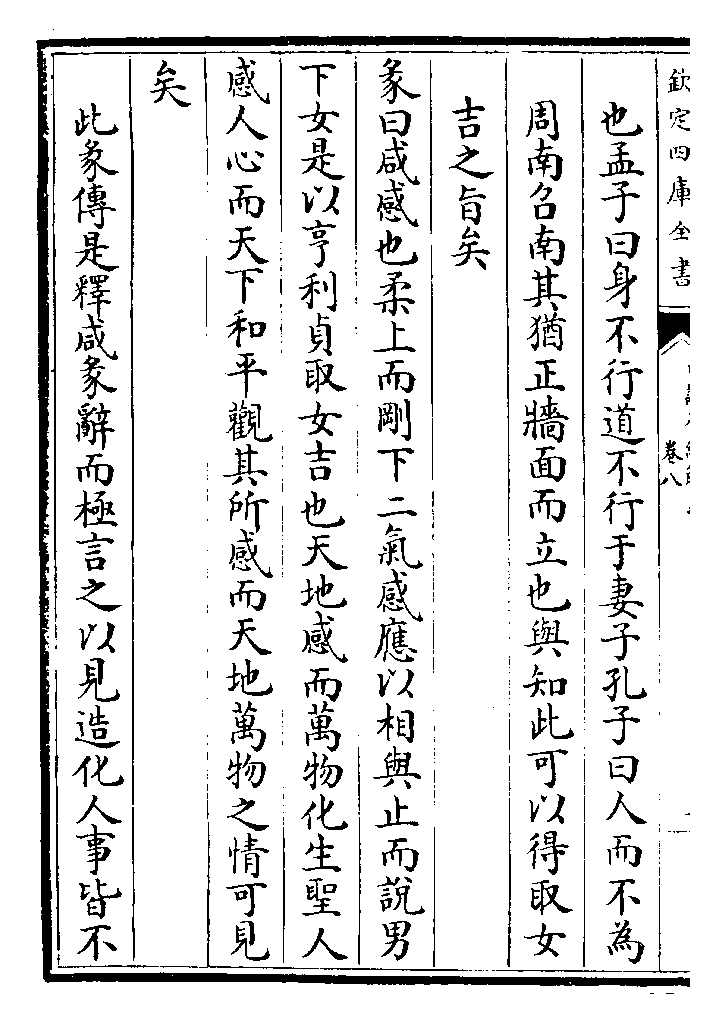 欽定四庫全書
卷八
也孟子曰身不行道不行于妻子孔子曰人而不為
周南召南其猶正牆面而立也與知此可以得取女
吉之旨矣
彖曰咸感也柔上而剛下二氣感應以相與止而說男
下女是以亨利貞取女吉也天地感而萬物化生聖人
感人心而天下和平觀其所感而天地萬物之情可見
矣
此彖傳是釋咸彖辭而極言之以見造化人事皆不